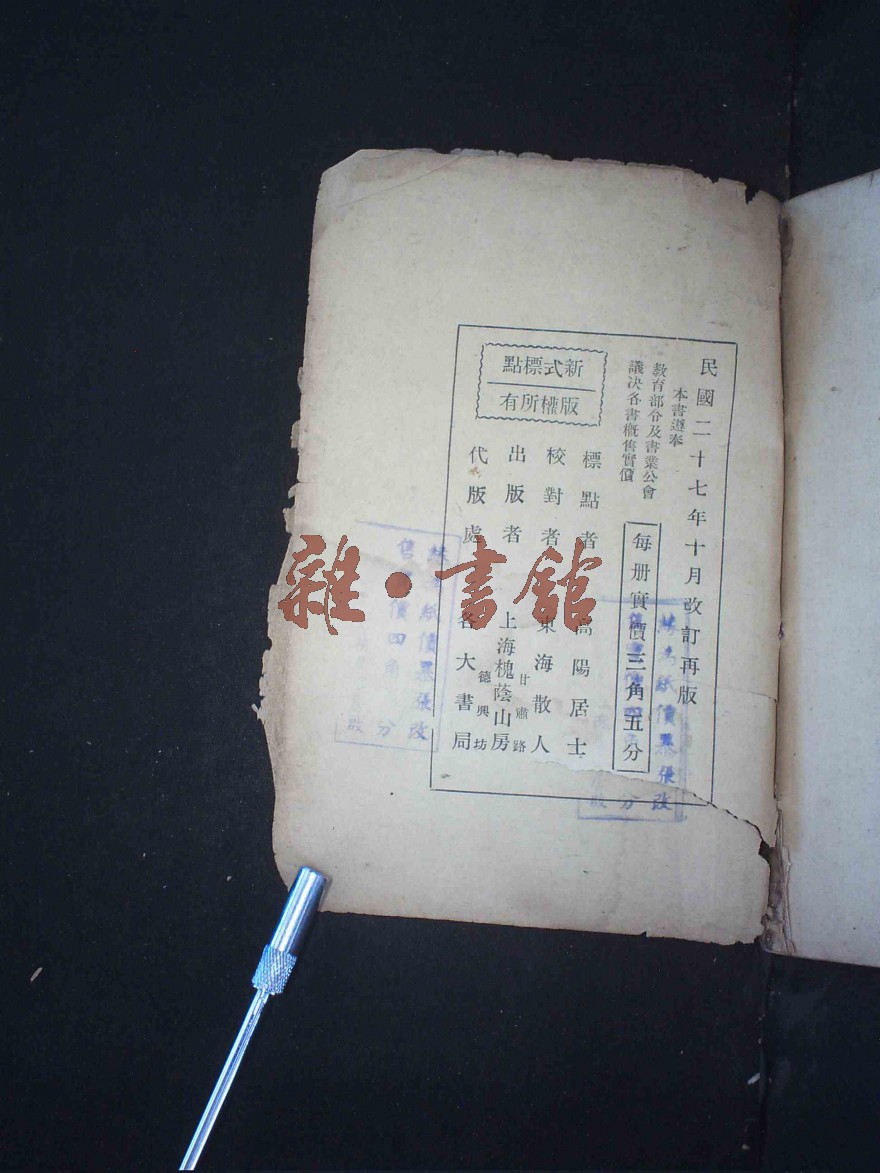 民國二十七年十月改訂再版
本書遵奉
教育部令及書業公會
議决各書概售實價
每册實價三角五分
新式標點
版權所有
標點者 高陽居士
校對者 東海散人
出版者 上海槐蔭山房
甘肅路
德興坊
代版處 各大書局
紙價暴漲改
售 價四角 分
紙價暴漲改
分
雜·書館